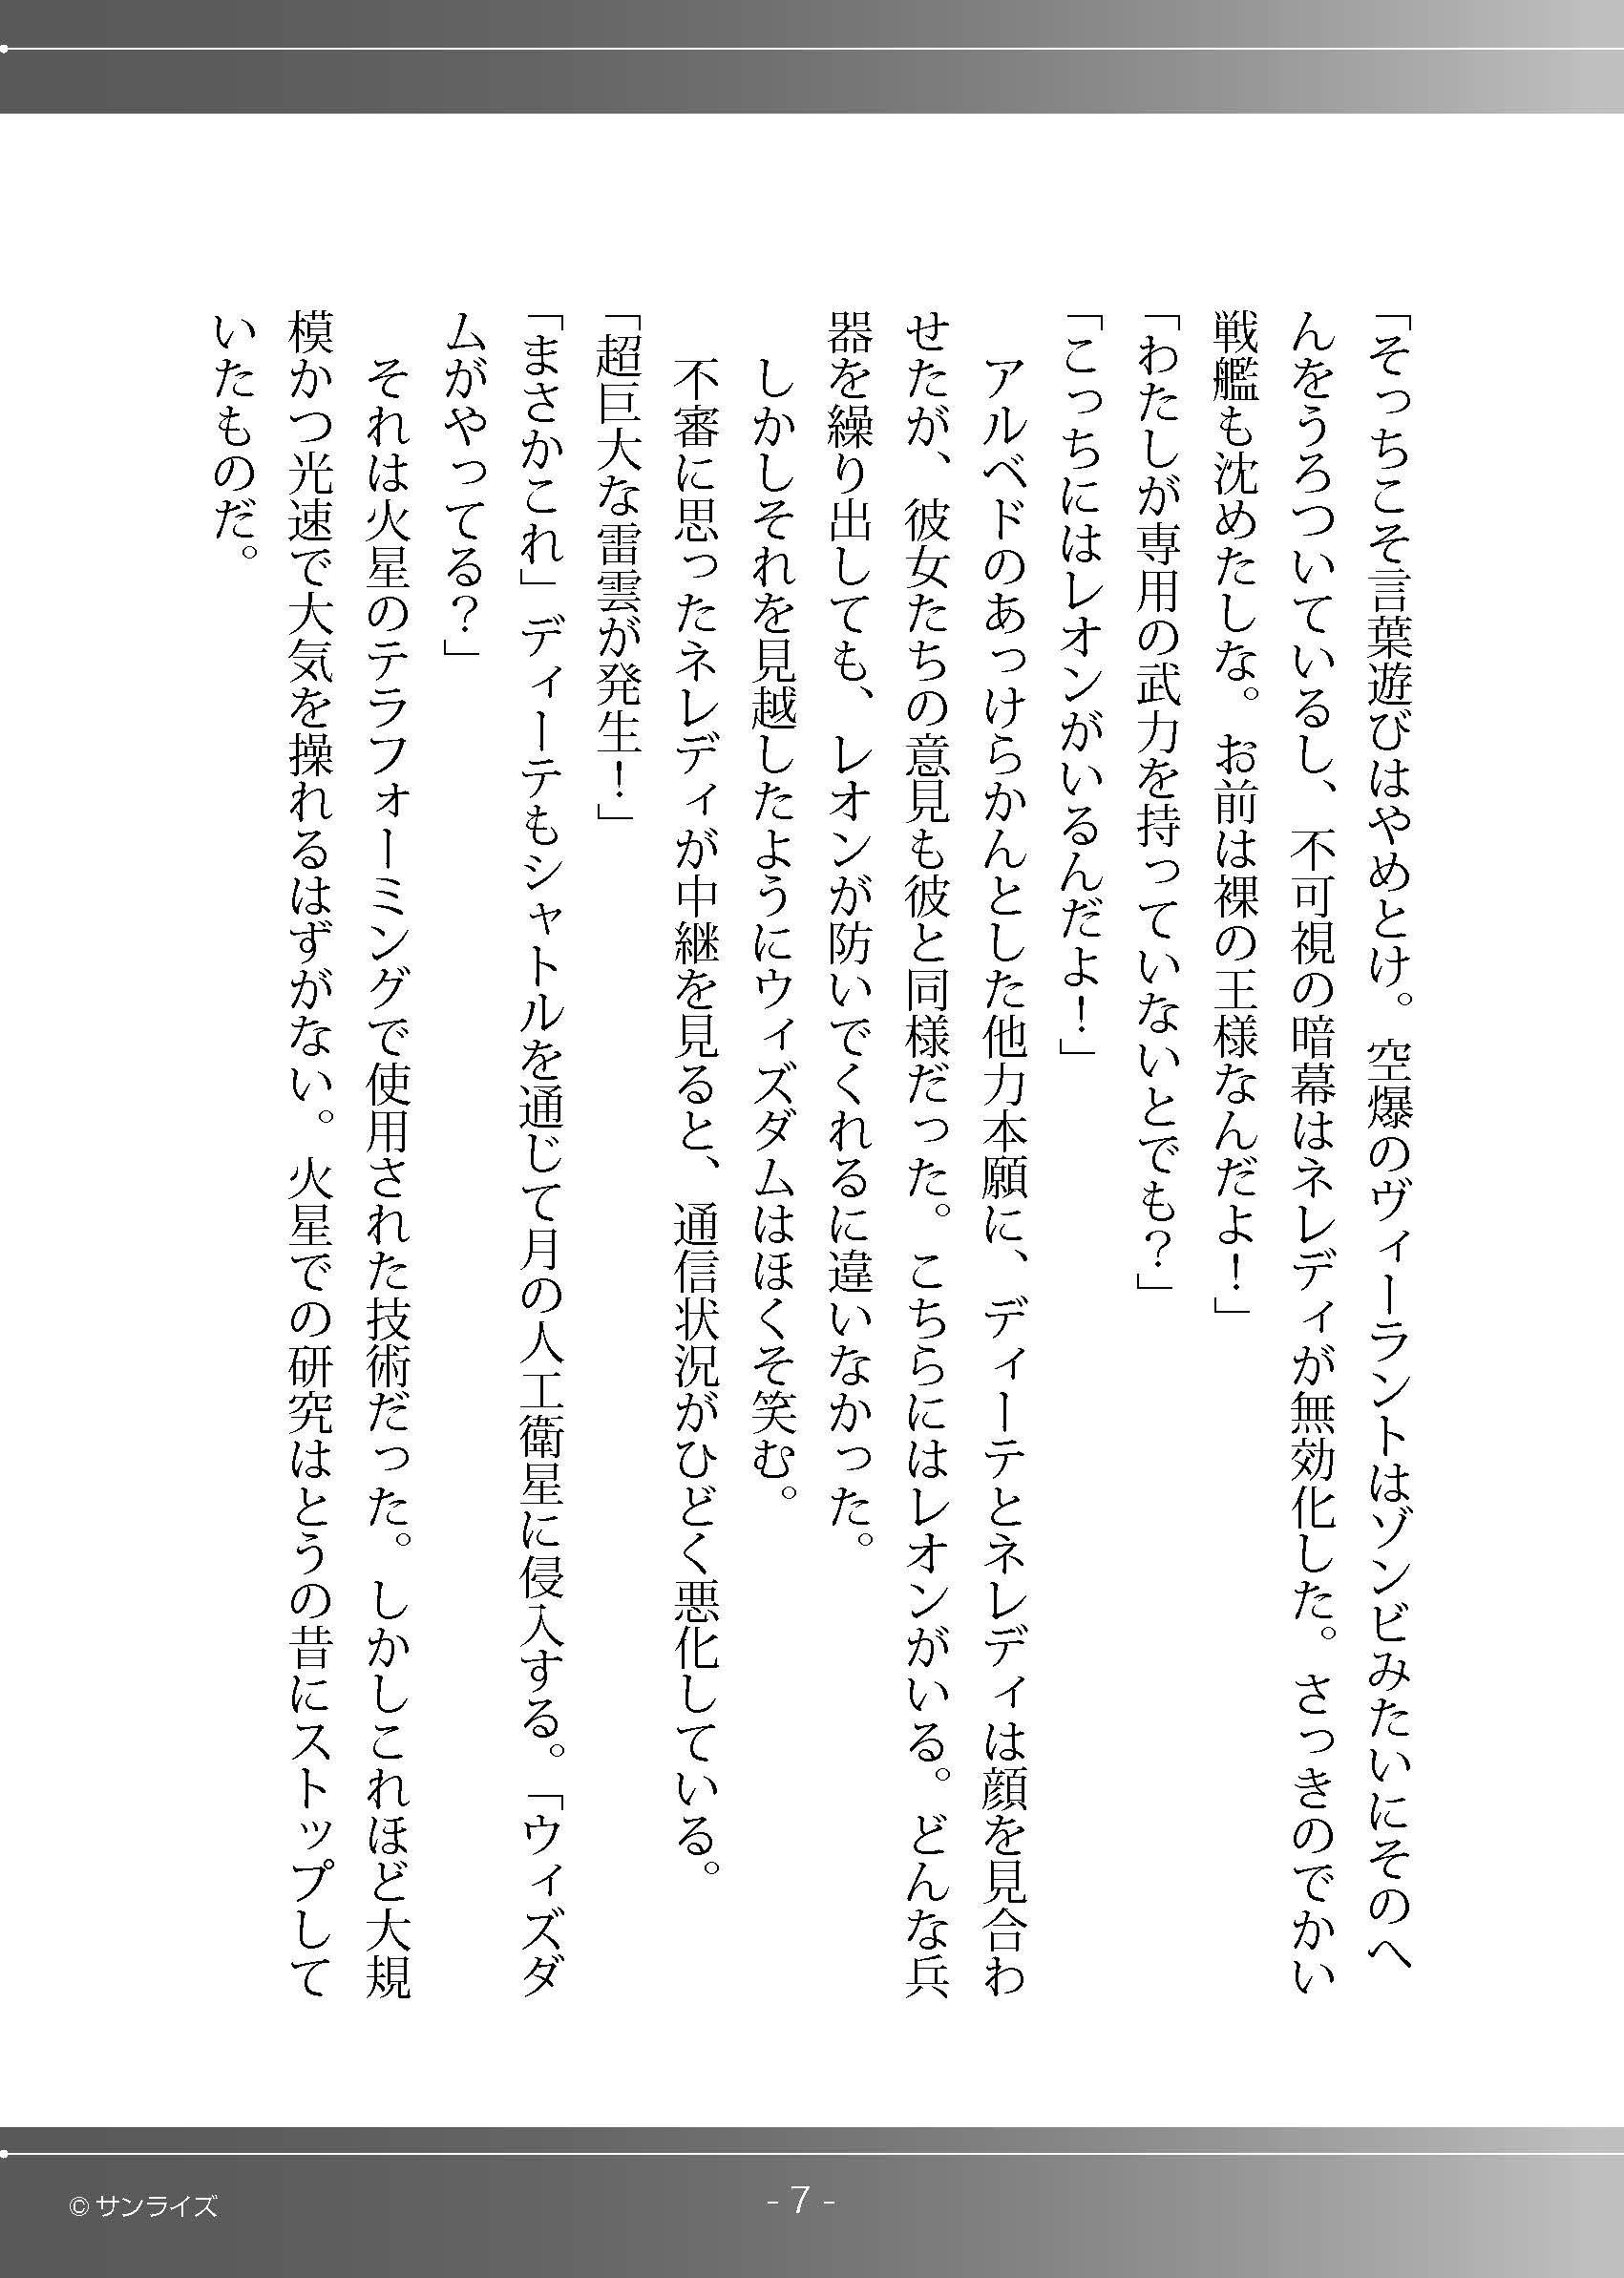 「そっちこそ言葉遊びはやめとけ。空爆のヴィーラントはゾンビみたいにそのへ
んをうろついているし、不可視の暗幕はネレディが無効化した。さっきのでかい
戦艦も沈めたしな。お前は裸の王様なんだよ！」
「わたしが専用の武力を持っていないとでも？」
「こっちにはレオンがいるんだよ！」
　アルベドのあっけらかんとした他力本願に、ディーテとネレディは顔を見合わ
せたが、彼女たちの意見も彼と同様だった。こちらにはレオンがいる。どんな兵
器を繰り出しても、レオンが防いでくれるに違いなかった。
　しかしそれを見越したようにウィズダムはほくそ笑む。
　不審に思ったネレディが中継を見ると、通信状況がひどく悪化している。
「超巨大な雷雲が発生！」
「まさかこれ」ディーテもシャトルを通じて月の人工衛星に侵入する。「ウィズダ
ムがやってる？」
　それは火星のテラフォーミングで使用された技術だった。しかしこれほど大規
模かつ光速で大気を操れるはずがない。火星での研究はとうの昔にストップして
いたものだ。
© サンライズ
- 7 -